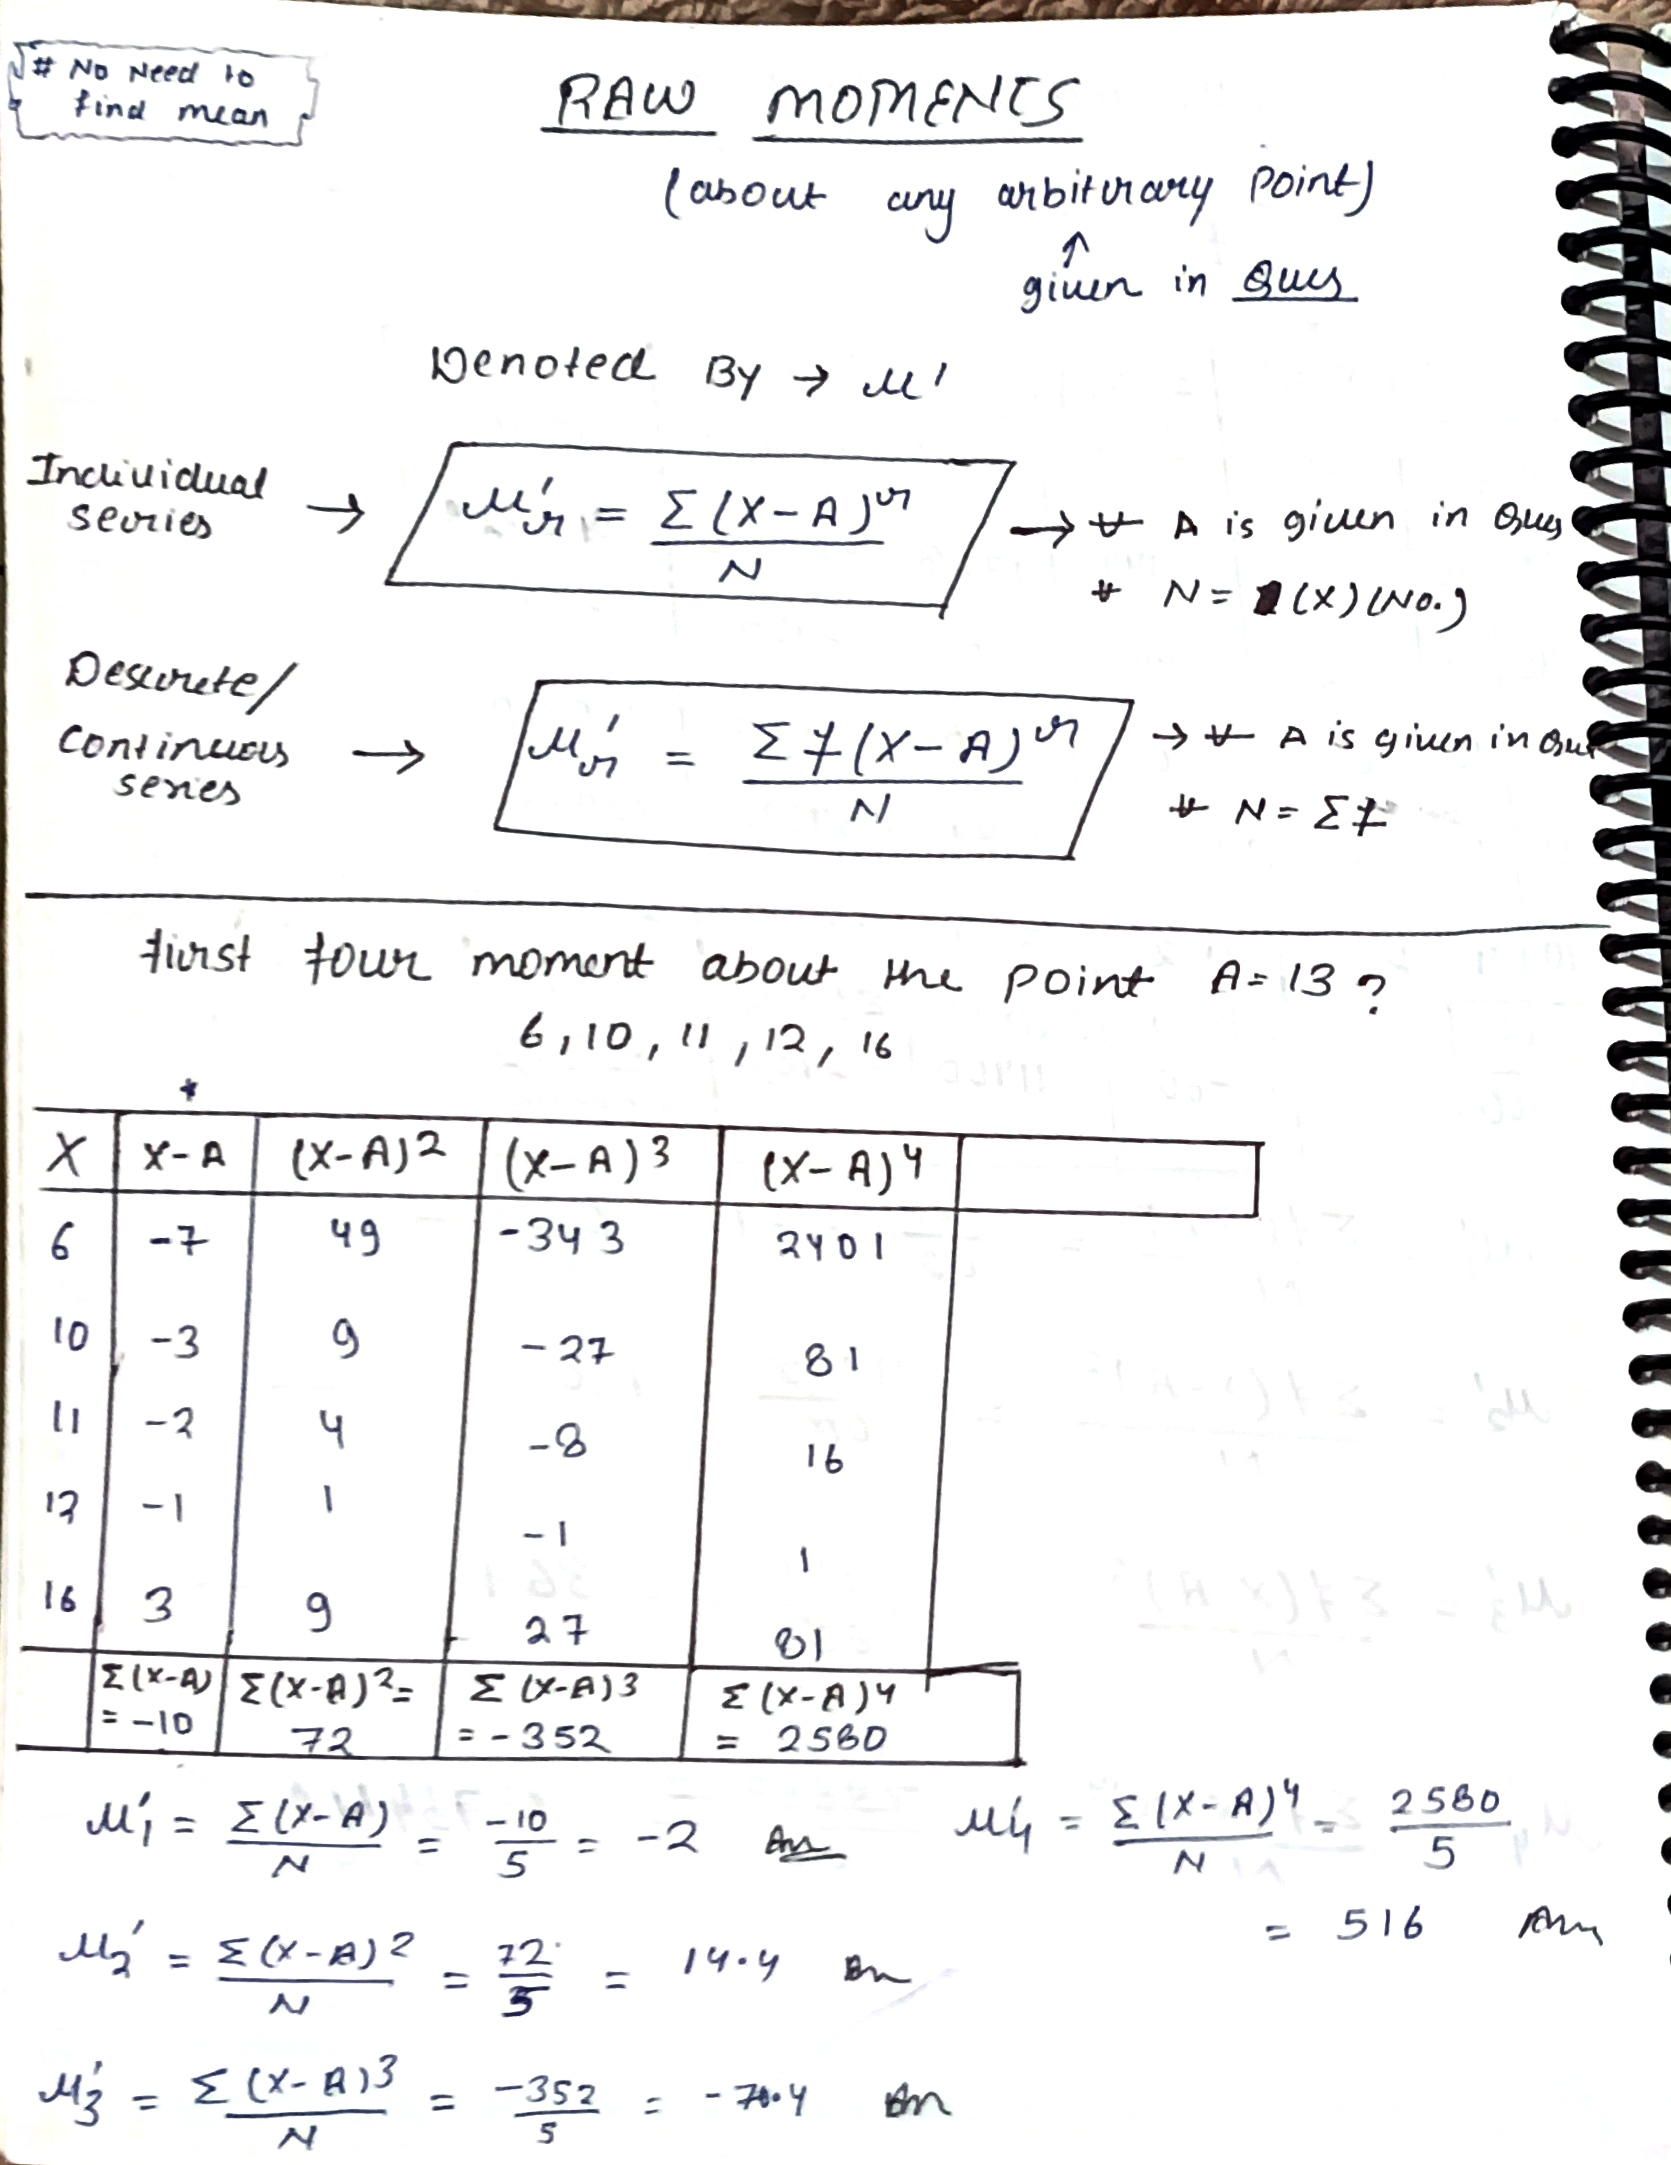 # No Need to
find mean
RAW MOMENTS
(about any arbitrary Point)
↑
given in Ques
Denoted By → μ'
Individual
series → μ'r = Σ(X-A)^r / N → * A is given in Ques
* N = (X) (No.)
Descrete/
Continuous
series → μ'r = Σf(X-A)^r / N → * A is given in Que
* N = Σf
first four moment about the point A = 13 ?
6, 10, 11, 12, 16
*
X | X-A | (X-A)2 | (X-A)3 | (X-A)4
6 | -7 | 49 | -343 | 2401
10 | -3 | 9 | -27 | 81
11 | -2 | 4 | -8 | 16
12 | -1 | 1 | -1 | 1
16 | 3 | 9 | 27 | 81
Σ(X-A) = -10 | Σ(X-A)2 = 72 | Σ(X-A)3 = -352 | Σ(X-A)4 = 2580
μ'1 = Σ(X-A) / N = -10/5 = -2 Ans
μ'2 = Σ(X-A)2 / N = 72/5 = 14.4 An
μ'3 = Σ(X-A)3 / N = -352/5 = -70.4 An
μ'4 = Σ(X-A)4 / N = 2580/5
= 516 Ans